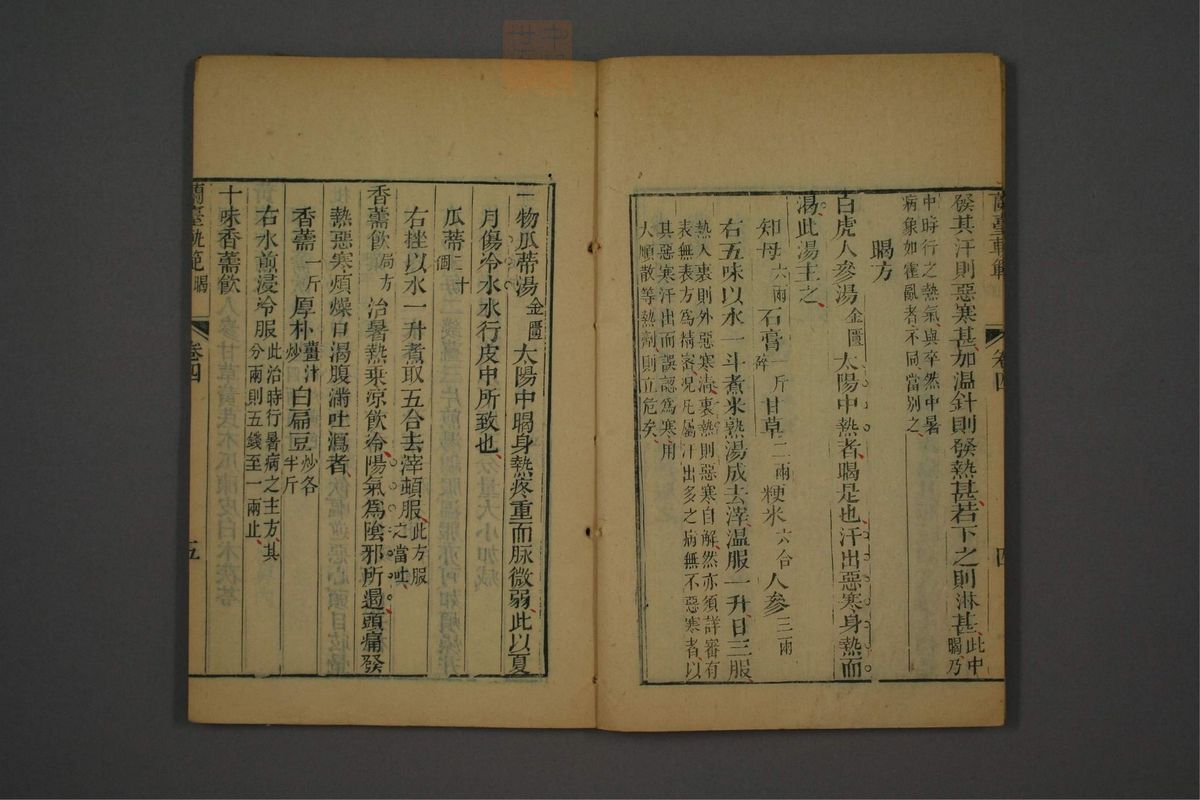 蘭臺軌範
卷四
四
發其汗則惡寒甚加温針則發熱甚若下之則淋甚此中暍乃
中時行之熱氣與卒然中暑
病象如霍亂者不同當别之
暍方
白虎人參湯金匱 太陽中熱者暍是也汗出惡寒身熱而
渴此湯主之
知母六兩 石膏一斤碎 甘草二兩 粳米六合 人參三兩
右五味以水一斗煮米熟湯成去滓温服一升日三服
熱入裏則外惡寒清裏熱則惡寒自解然亦須詳審有
表無表方爲精密况凡屬汗出多之病無不惡寒者以
其惡寒汗出而誤認爲寒用
大順散等熱劑則立危矣
一物瓜蒂湯金匱 太陽中暍身熱疼重而脉微弱此以夏
月傷冷水水行皮中所致也
瓜蒂二十個
右挫以水一升煮取五合去滓頓服此方服之當吐
香薷飲局方 治暑熱乘凉飲冷陽氣爲陰邪所遏頭痛發
熱惡寒煩燥口渴腹滿吐瀉者
香薷一斤 厚朴薑汁炒 白扁豆炒各半斤
右水煎浸冷服此治時行暑病之主方其
分兩則五錢至一兩止
十味香薷飲
蘭臺軌範 暍
卷四
五